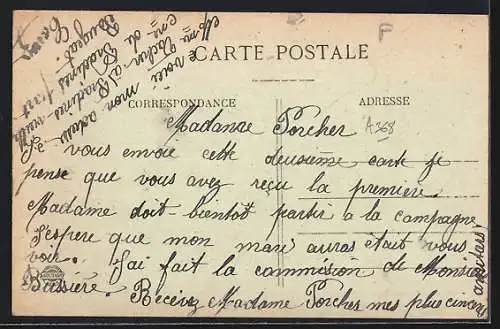 CARTE POSTALE
CORRESPONDANCE
ADRESSE
F
A268
Madame Porcher
Je vous envoie cette deusième carte je
pense que vous avez reçu la première.
Madame doit-bientôt partir a la campagne
J'espere que mon mari auras était vous
voir. J'ai fait la commission de Monsieur
Bussière. Recevez Madame Porcher mes plus sincères
voici mon adresse
Mme Porcher